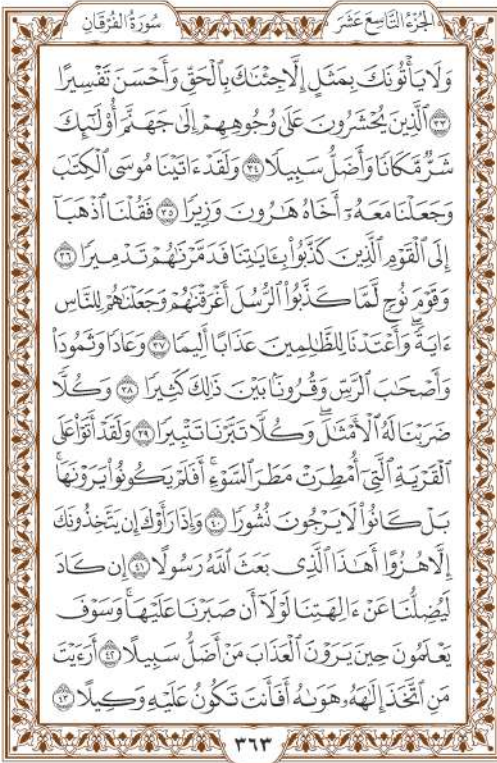 سُورَةُ الفُرْقَانِ الجُزْءُ التَّاسِعَ عَشَرَ
وَلَا يَأْتُونَكَ بِمَثَلٍ إِلَّا جِئْنَٰكَ بِٱلْحَقِّ وَأَحْسَنَ تَفْسِيرًا
٣٣ ٱلَّذِينَ يُحْشَرُونَ عَلَىٰ وُجُوهِهِمْ إِلَىٰ جَهَنَّمَ أُو۟لَٰٓئِكَ
شَرٌّ مَّكَانًا وَأَضَلُّ سَبِيلًا ٣٤ وَلَقَدْ ءَاتَيْنَا مُوسَى ٱلْكِتَٰبَ
وَجَعَلْنَا مَعَهُۥٓ أَخَاهُ هَٰرُونَ وَزِيرًا ٣٥ فَقُلْنَا ٱذْهَبَآ
إِلَى ٱلْقَوْمِ ٱلَّذِينَ كَذَّبُوا۟ بِـَٔايَٰتِنَا فَدَمَّرْنَٰهُمْ تَدْمِيرًا ٣٦
وَقَوْمَ نُوحٍ لَّمَّا كَذَّبُوا۟ ٱلرُّسُلَ أَغْرَقْنَٰهُمْ وَجَعَلْنَٰهُمْ لِلنَّاسِ
ءَايَةً ۖ وَأَعْتَدْنَا لِلظَّٰلِمِينَ عَذَابًا أَلِيمًا ٣٧ وَعَادًا وَثَمُودَا۟
وَأَصْحَٰبَ ٱلرَّسِّ وَقُرُونًۢا بَيْنَ ذَٰلِكَ كَثِيرًا ٣٨ وَكُلًّا
ضَرَبْنَا لَهُ ٱلْأَمْثَٰلَ ۖ وَكُلًّا تَبَّرْنَا تَتْبِيرًا ٣٩ وَلَقَدْ أَتَوْا۟ عَلَى
ٱلْقَرْيَةِ ٱلَّتِىٓ أُمْطِرَتْ مَطَرَ ٱلسَّوْءِ ۚ أَفَلَمْ يَكُونُوا۟ يَرَوْنَهَا ۚ
بَلْ كَانُوا۟ لَا يَرْجُونَ نُشُورًا ٤٠ وَإِذَا رَأَوْكَ إِن يَتَّخِذُونَكَ
إِلَّا هُزُوًا أَهَٰذَا ٱلَّذِى بَعَثَ ٱللَّهُ رَسُولًا ٤١ إِن كَادَ
لَيُضِلُّنَا عَنْ ءَالِهَتِنَا لَوْلَآ أَن صَبَرْنَا عَلَيْهَا ۚ وَسَوْفَ
يَعْلَمُونَ حِينَ يَرَوْنَ ٱلْعَذَابَ مَنْ أَضَلُّ سَبِيلًا ٤٢ أَرَءَيْتَ
مَنِ ٱتَّخَذَ إِلَٰهَهُۥ هَوَىٰهُ أَفَأَنتَ تَكُونُ عَلَيْهِ وَكِيلًا ٤٣
٣٦٣